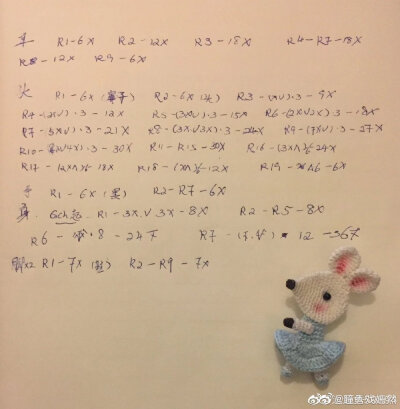 耳 R1-6X R2-12X R3-18X R4-R7-18X
R8-12X R9-6X
头 R1-6X R2-6X R3-(XV)·3-9X
R4-(2XV)·3-12X R5-(3XV)·3-15X R6-(2XV2X)·3-18X
R7-5XV)·3-21X R8-(3XV3X)·3-24X R9-(7XV)·3-27X
R10-(4XV4X)·3-30X R11-R15-30X R16-(3XA)6-24X
R17-(2XA)6-18X R18-(XA)6-12X R19-A6-6X
手 R1-6X (黑) R2-R7-6X
身 6ch起 R1-3X.V 3X-8X R2-R5-8X
R6-·8-24 R7-12-36
脚X2 R1-7X R2-R9-7X